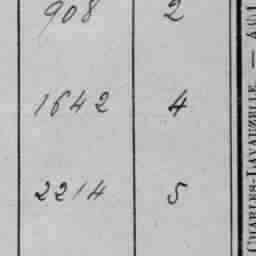 908 2
1642 4
2214 5
CHARLES-LAVAUZELLE. —